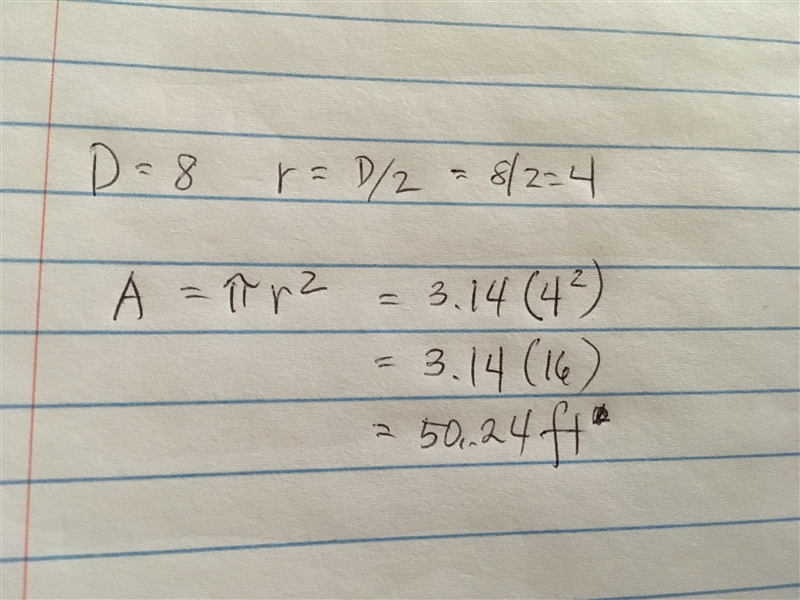 D = 8 r = D/2 = 8/2 = 4
A = πr² = 3.14 (4²)
= 3.14 (16)
= 50.24 ft